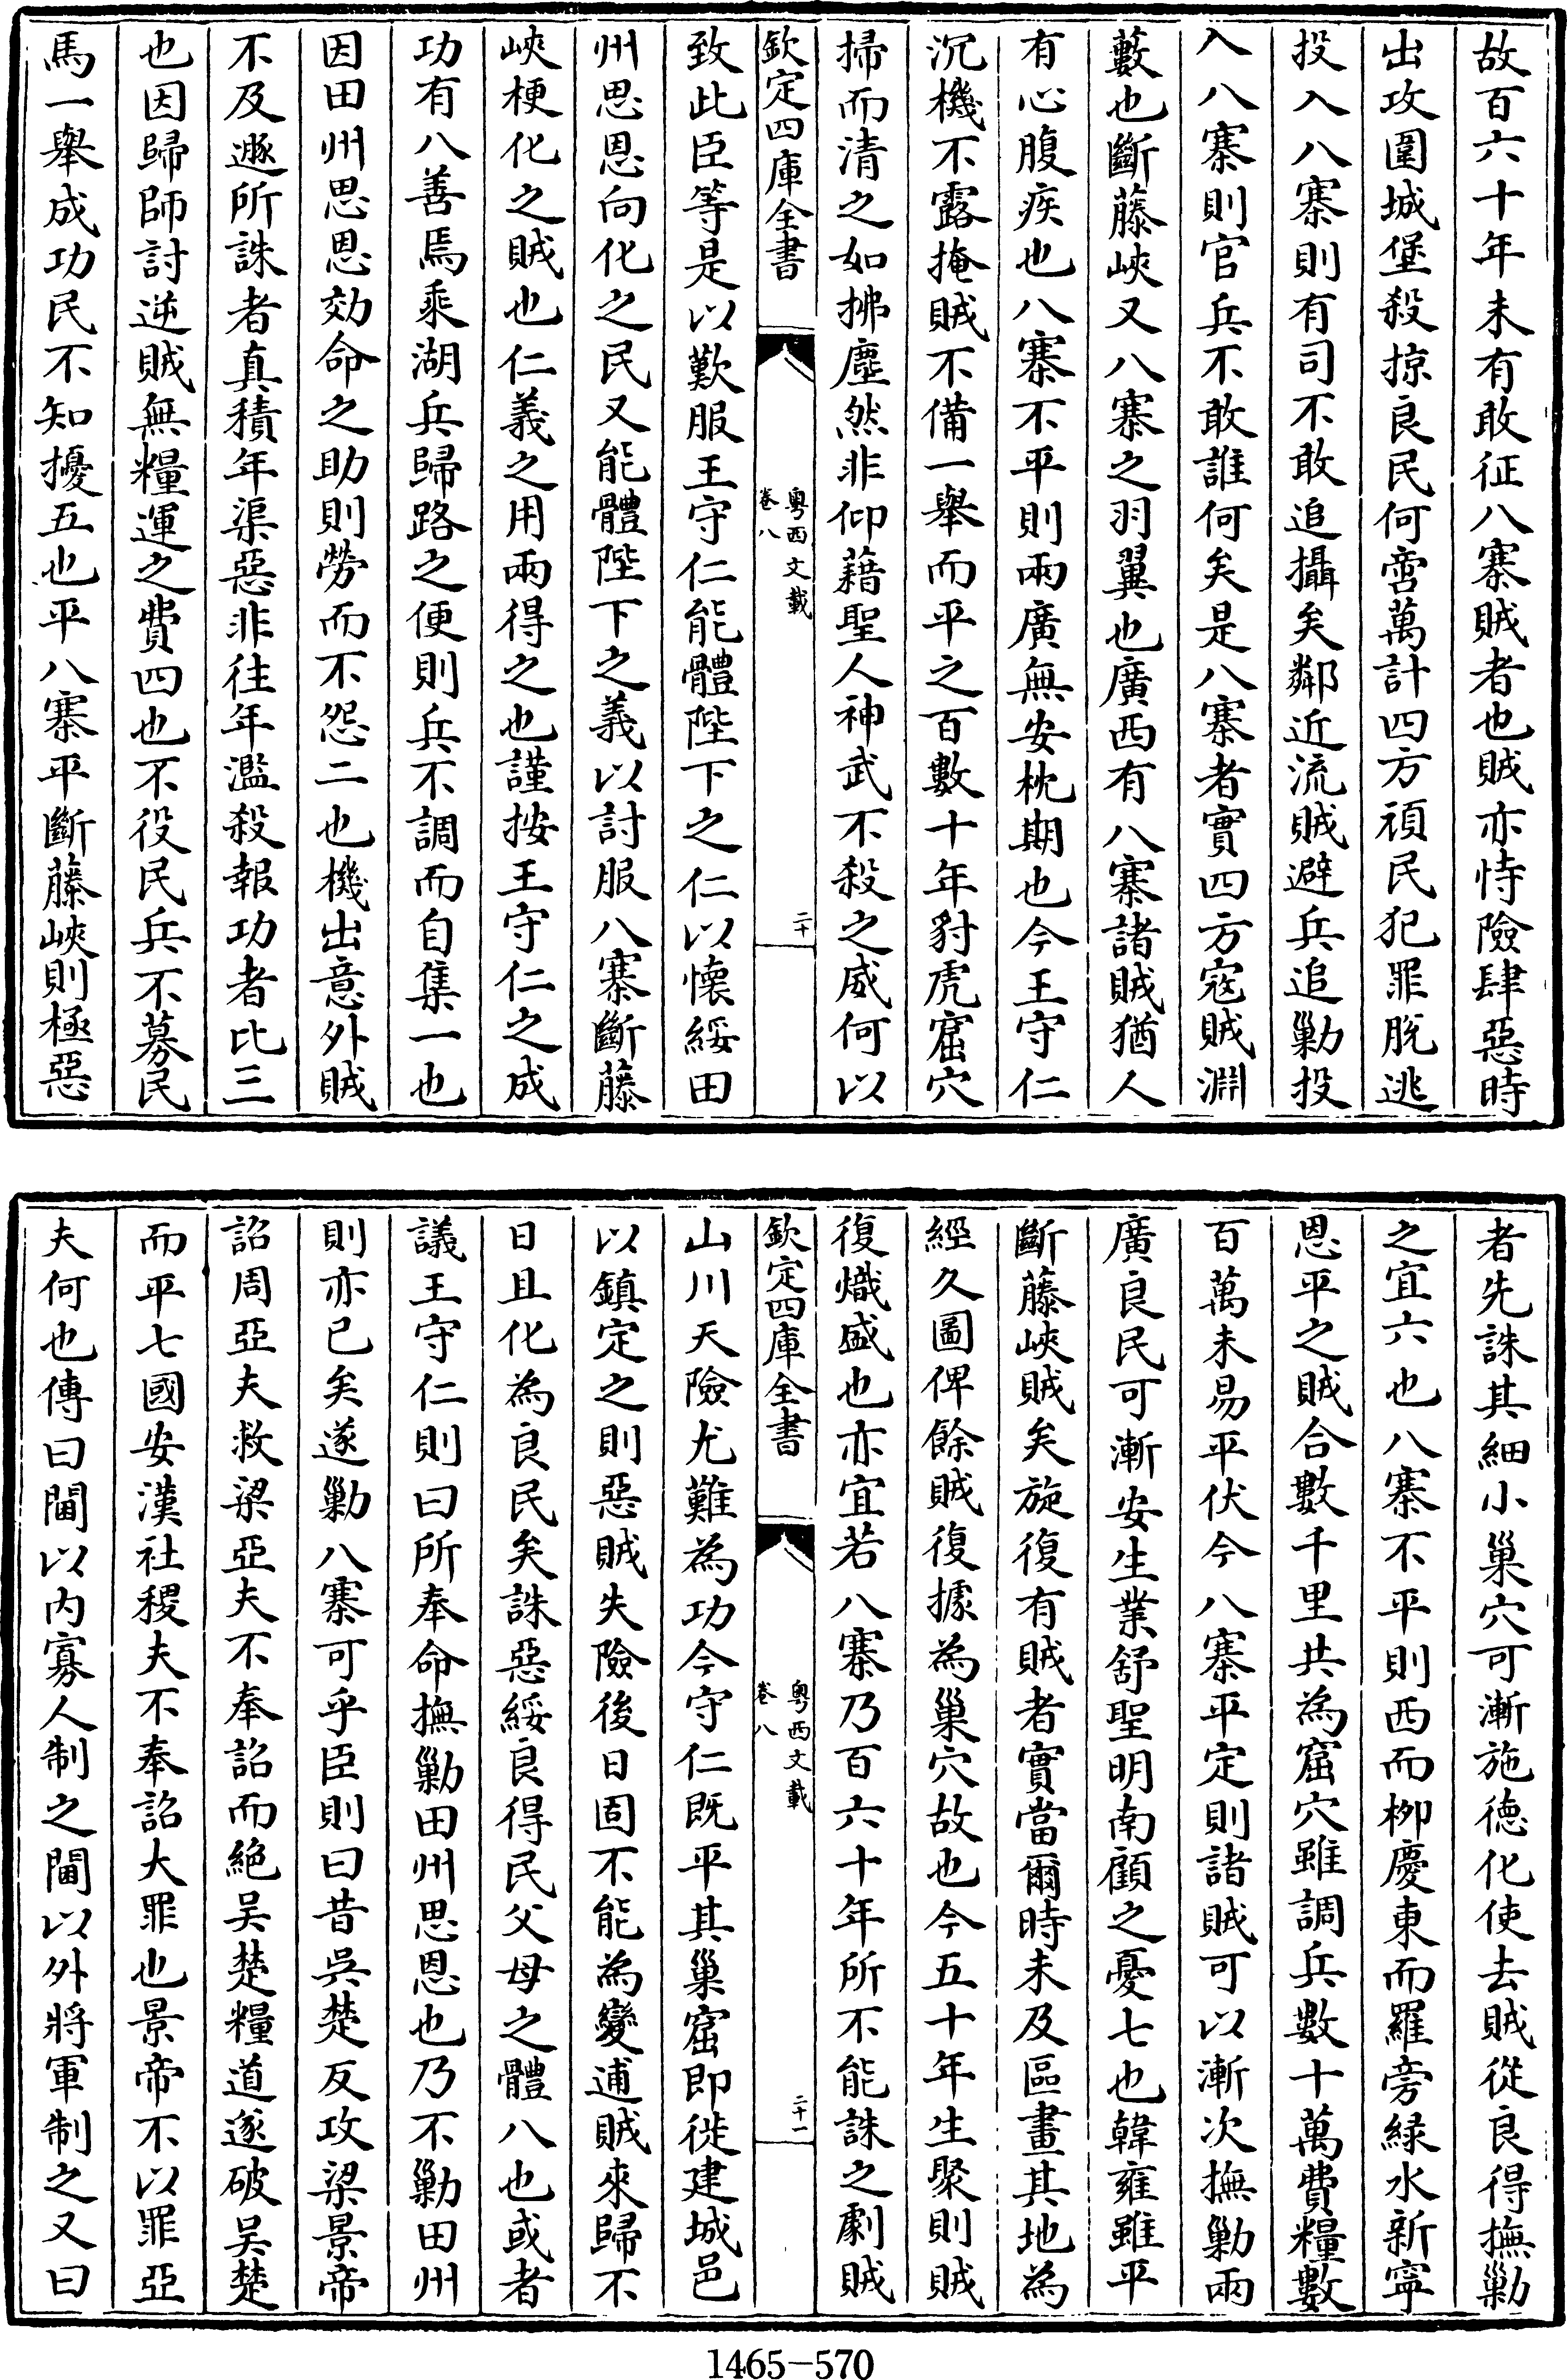 故百六十年未有敢征八寨賊者也賊亦恃險肆惡時
出攻圍城堡殺掠良民何啻萬計四方頑民犯罪脫逃
投入八寨則有司不敢追攝矣鄰近流賊避兵追勦投
入八寨則官兵不敢誰何矣是八寨者實四方寇賊淵
藪也斷藤峽又八寨之羽翼也廣西有八寨諸賊猶人
有心腹疾也八寨不平則兩廣無安枕期也今王守仁
沉機不露掩賊不備一舉而平之百數十年豺虎窟穴
掃而清之如拂塵然非仰藉聖人神武不殺之威何以
欽定四庫全書
粵西文載
卷八
二十
致此臣等是以歎服王守仁能體陛下之仁以懷綏田
州思恩向化之民又能體陛下之義以討服八寨斷藤
峽梗化之賊也仁義之用兩得之也謹按王守仁之成
功有八善焉乘湖兵歸路之便則兵不調而自集一也
因田州思恩効命之助則勞而不怨二也機出意外賊
不及遯所誅者真積年渠惡非往年濫殺報功者比三
也因歸師討逆賊無糧運之費四也不役民兵不募民
馬一舉成功民不知擾五也平八寨平斷藤峽則極惡
者先誅其細小巢穴可漸施德化使去賊從良得撫勦
之宜六也八寨不平則西而柳慶東而羅旁綠水新寧
恩平之賊合數千里共為窟穴雖調兵數十萬費糧數
百萬未易平伏今八寨平定則諸賊可以漸次撫勦兩
廣良民可漸安生業舒聖明南顧之憂七也韓雍雖平
斷藤峽賊矣旋復有賊者實當爾時未及區畫其地為
經久圖俾餘賊復據為巢穴故也今五十年生聚則賊
復熾盛也亦宜若八寨乃百六十年所不能誅之劇賊
欽定四庫全書
粵西文載
卷八
二十一
山川天險尤難為功今守仁既平其巢窟即徙建城邑
以鎮定之則惡賊失險後日固不能為變逋賊來歸不
日且化為良民矣誅惡綏良得民父母之體八也或者
議王守仁則曰所奉命撫勦田州思恩也乃不勦田州
則亦已矣遂勦八寨可乎臣則曰昔吳楚反攻梁景帝
詔周亞夫救梁亞夫不奉詔而絕吳楚糧道遂破吳楚
而平七國安漢社稷夫不奉詔大罪也景帝不以罪亞
夫何也傳曰閫以內寡人制之閫以外將軍制之又曰
1465-570